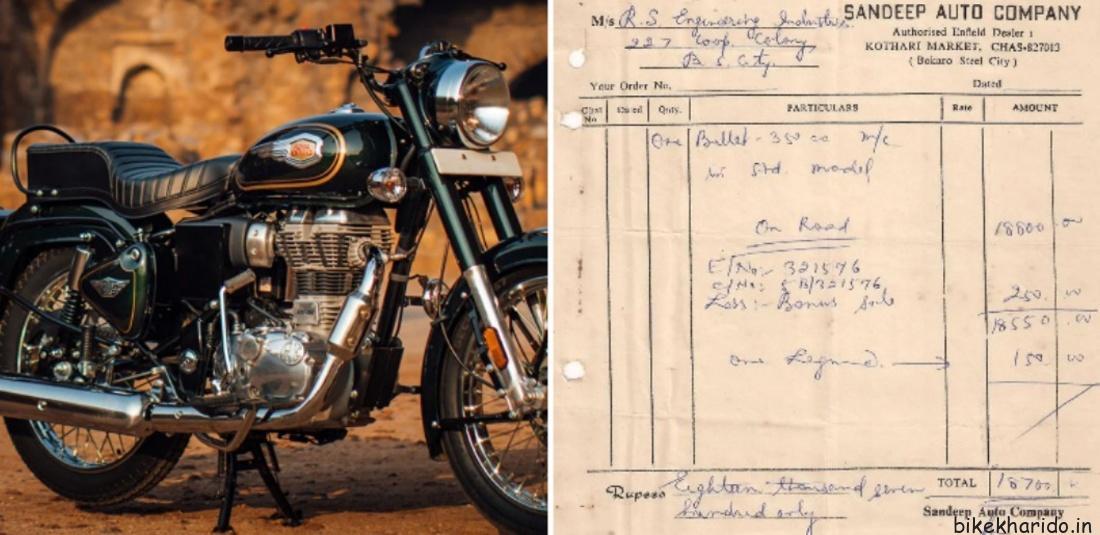 SANDEEP AUTO COMPANY
M/s R. S. Engineering Industries
Authorised Enfield Dealer :
227 Coop. Colony
KOTHARI MARKET, CHAS-827013
B. S. City.
( Bokaro Steel City )
Your Order No. Dated
Chal No Dated Qnty. PARTICULARS Rate AMOUNT
One Bullet - 350 cc m/c
in Std. model
On Road 18800 .00
E/No:- 321576
C/No:- 5B/321576
Less :- Bonus 250 .00
18550 .00
one Legguard → 150 .00
Rupees Eighteen thousand seven TOTAL 18700
hundred only
Sandeep Auto Company
bikekharido.in